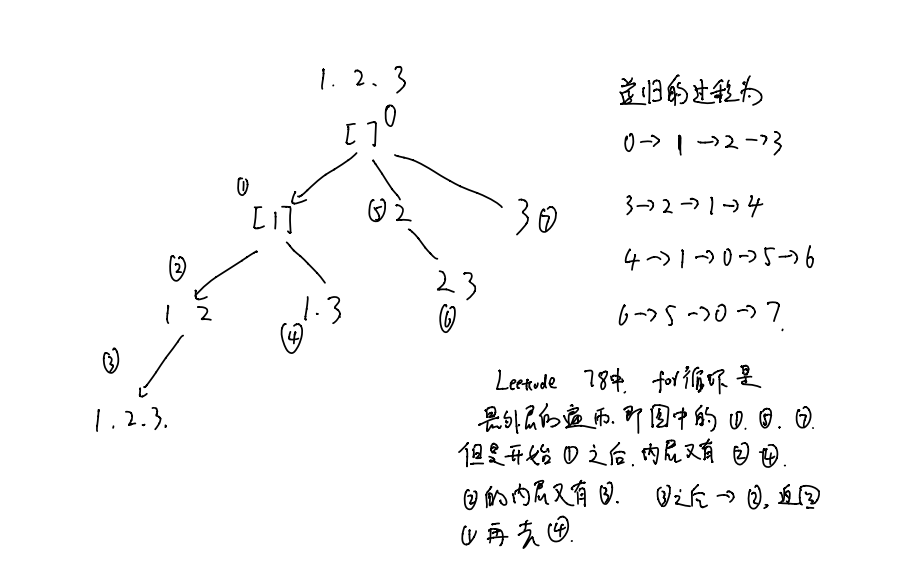 1.2.3
[ ]⁰
①
[1]
⑤2
3⑦
②
1 2
1.3
④
2 3
⑥
③
1.2.3.
递归的过程为
0→1→2→3
3→2→1→4
4→1→0→5→6
6→5→0→7.
Leetcode 78中, for循环是
是外层的遍历, 即图中的①.⑤.⑦.
但是开始①之后,内层又有②④.
②的内层又有③. ③之后→②,返回
①再去④.